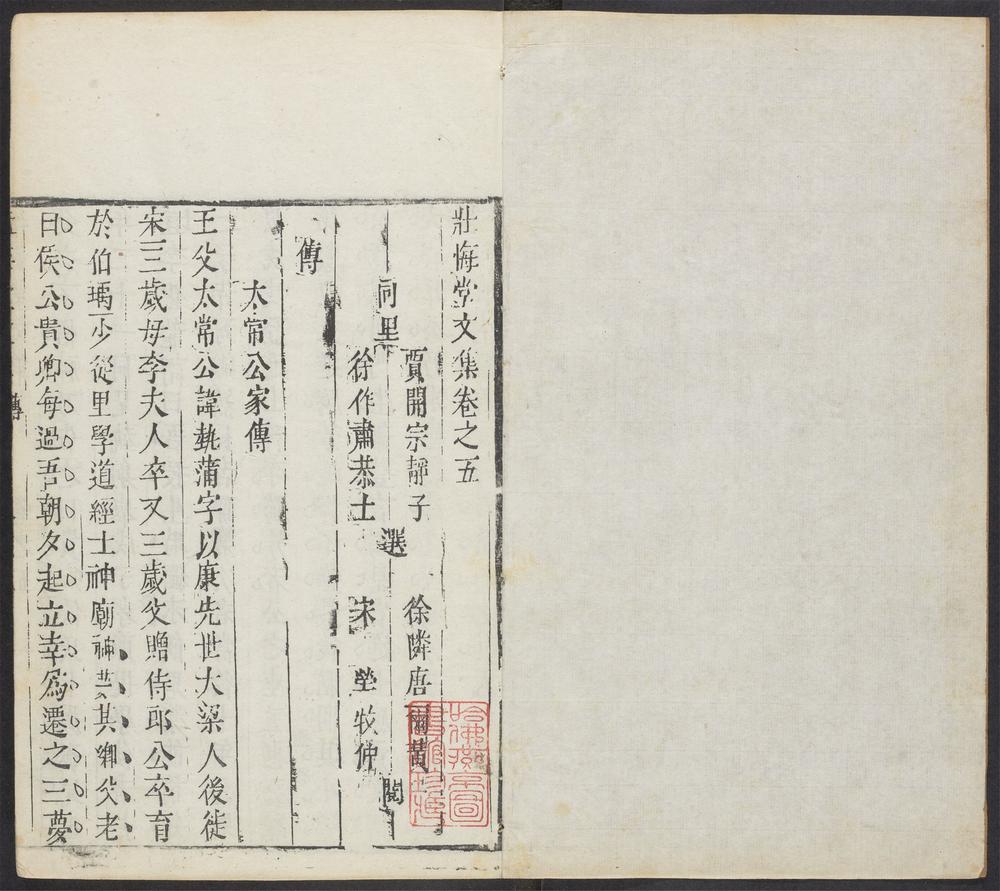 壯悔堂文集卷之五
同里
賈開宗靜子
徐作肅恭士
選
徐隣唐爾黃
宋犖牧仲
閱
傳
太常公家傳
王父太常公諱執蒲字以康先世大梁人後徙
宋三歲母李夫人卒又三歲父贈侍郎公卒育
於伯瑀少從里學道經土神廟神其鄉父老
曰侯公貴卿每過吾朝夕起立幸爲遷之三夢
傳
哈佛燕京圖書館珍藏